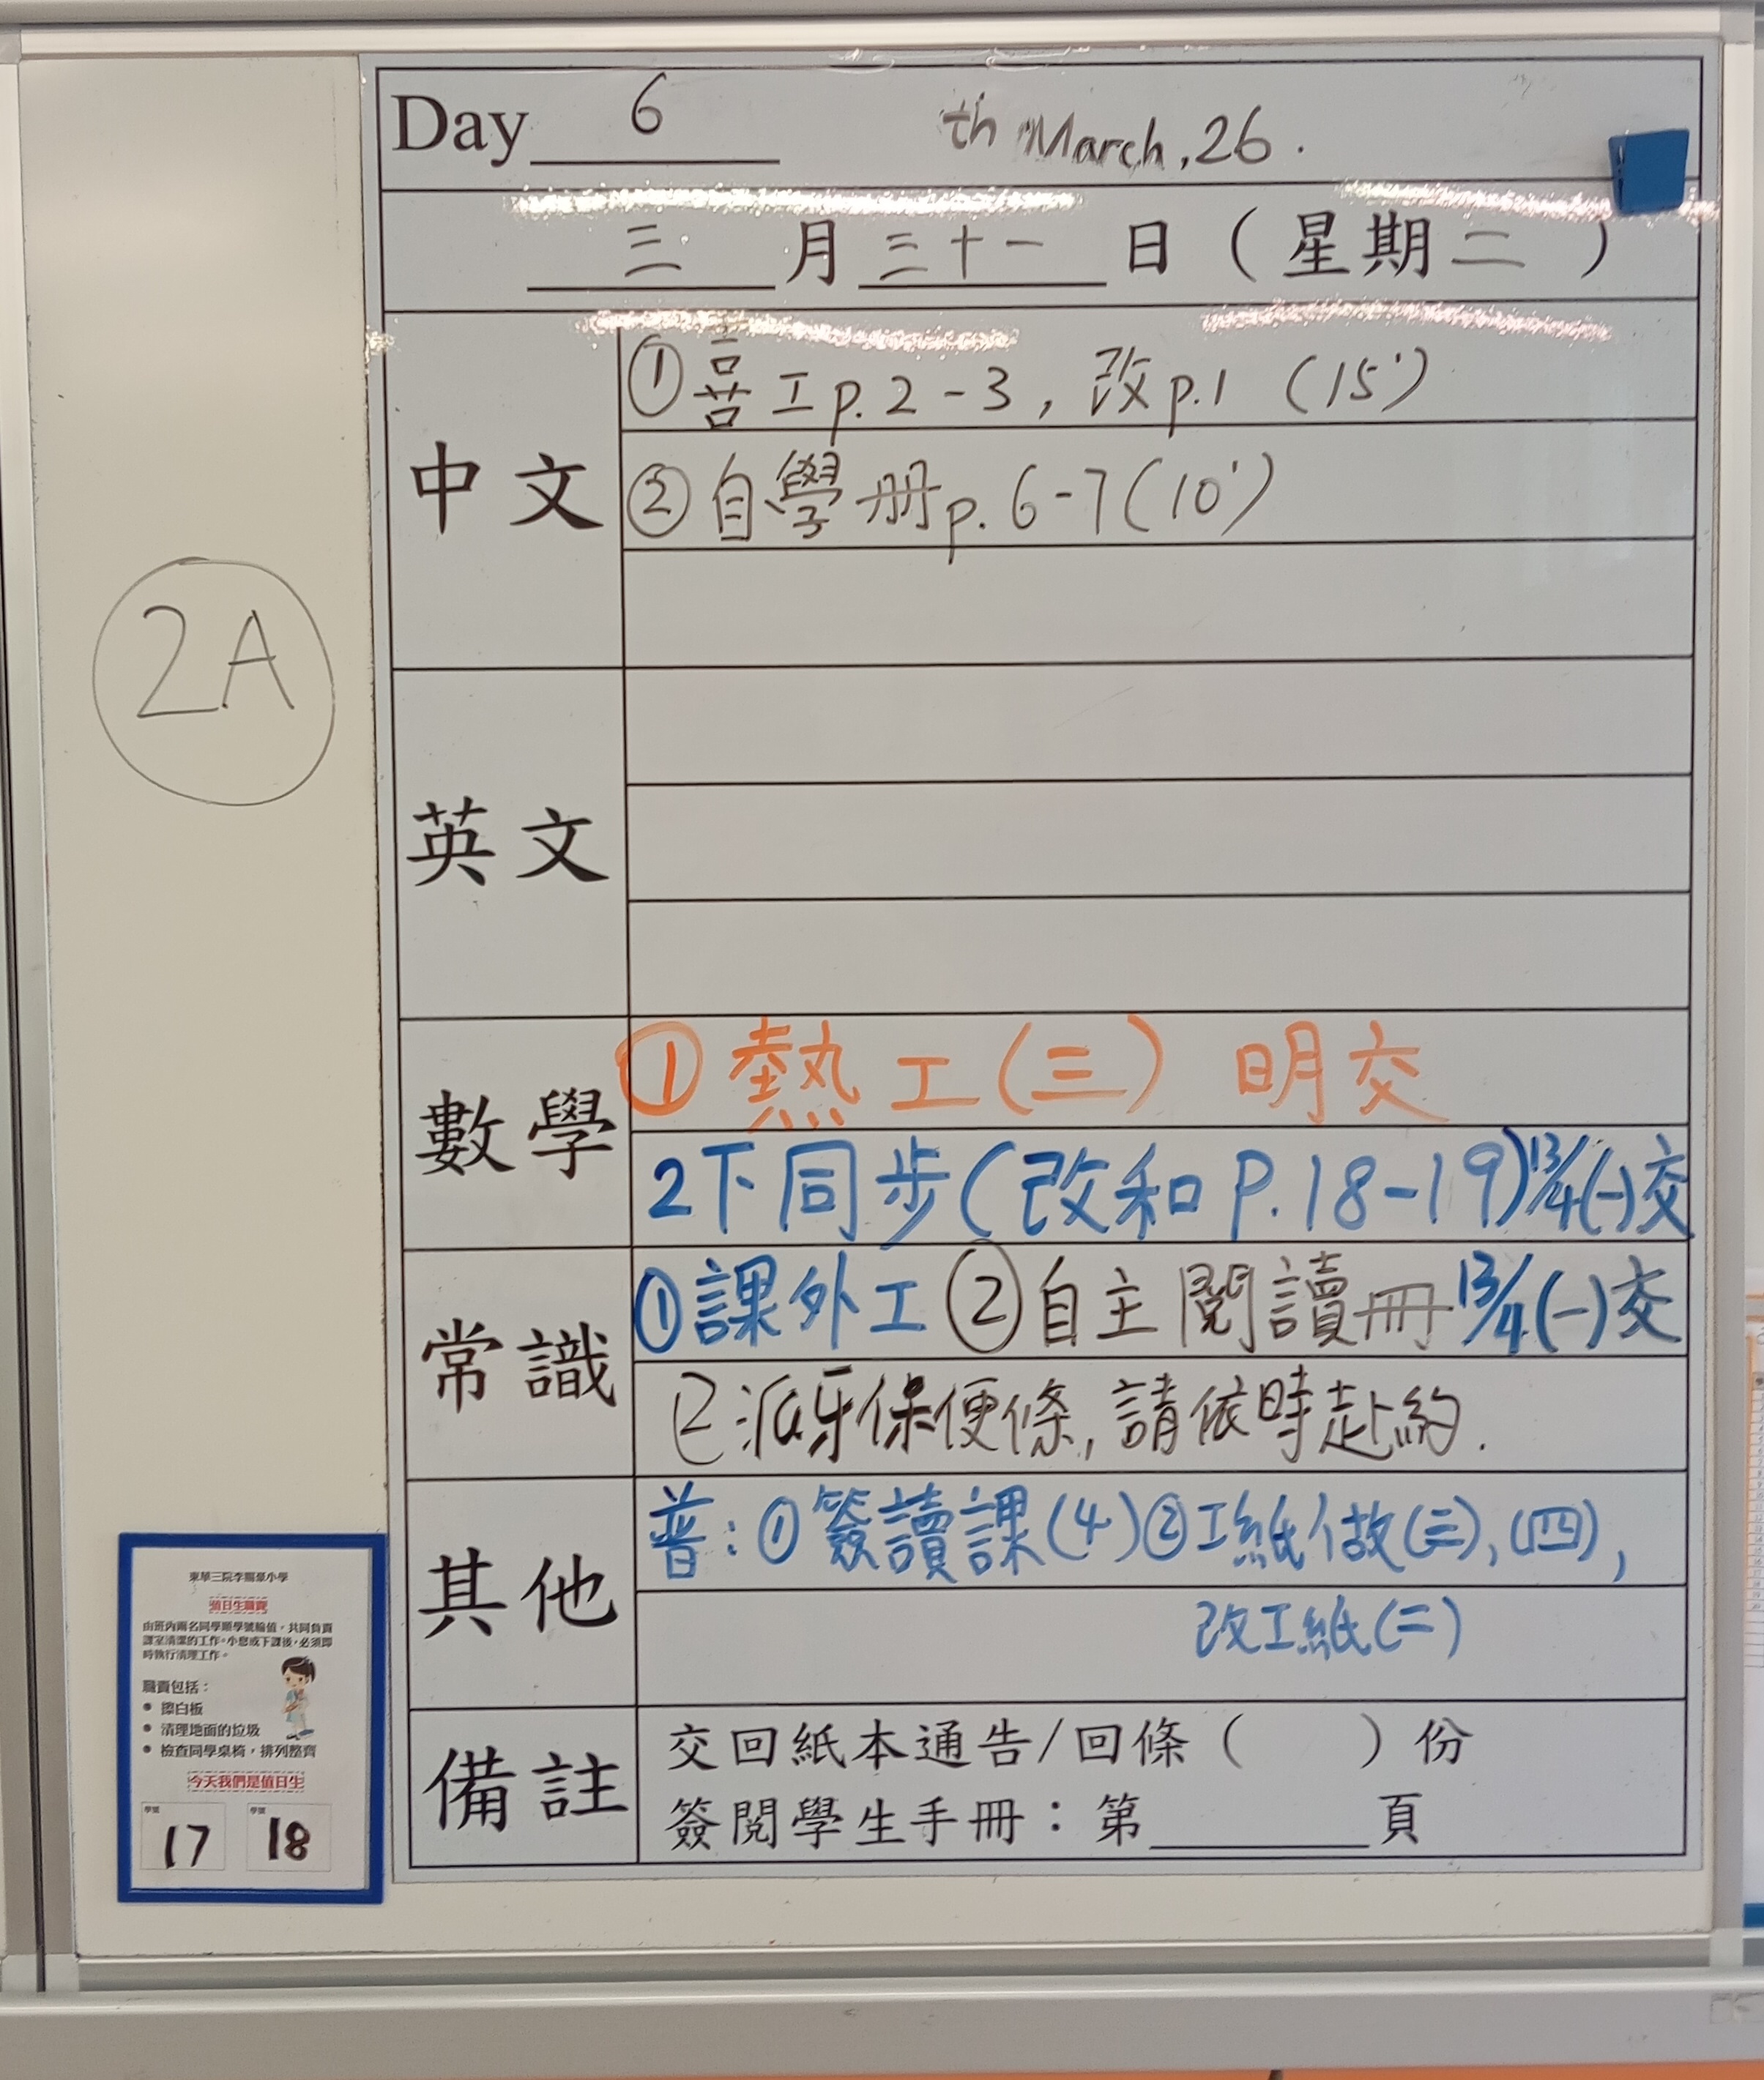 Day 6 th March, 26.
三 月 三十一 日 ( 星期 二 )
中文
① 喜工p.2-3, 改p.1 (15')
② 自學册p.6-7(10')
2A
英文
數學
① 熱工(三) 明交
2下同步(改和P.18-19)13/4(一)交
常識
①課外工 ②自主閱讀冊 13/4(一)交
已派牙保便條, 請依時赴約.
其他
普:①簽讀課(4)②工紙做(三),(四),
改工紙(二)
備註
交回紙本通告/回條 ( ) 份
簽閱學生手冊:第 頁
東華三院李賜豪小學
值日生職責
由班內兩名同學順學號輪值,共同負責
課室清潔的工作。小息或下課後,必須即
時執行清理工作。
職責包括:
● 擦白板
● 清理地面的垃圾
● 檢查同學桌椅,排列整齊
今天我們是值日生
學號 學號
17 18